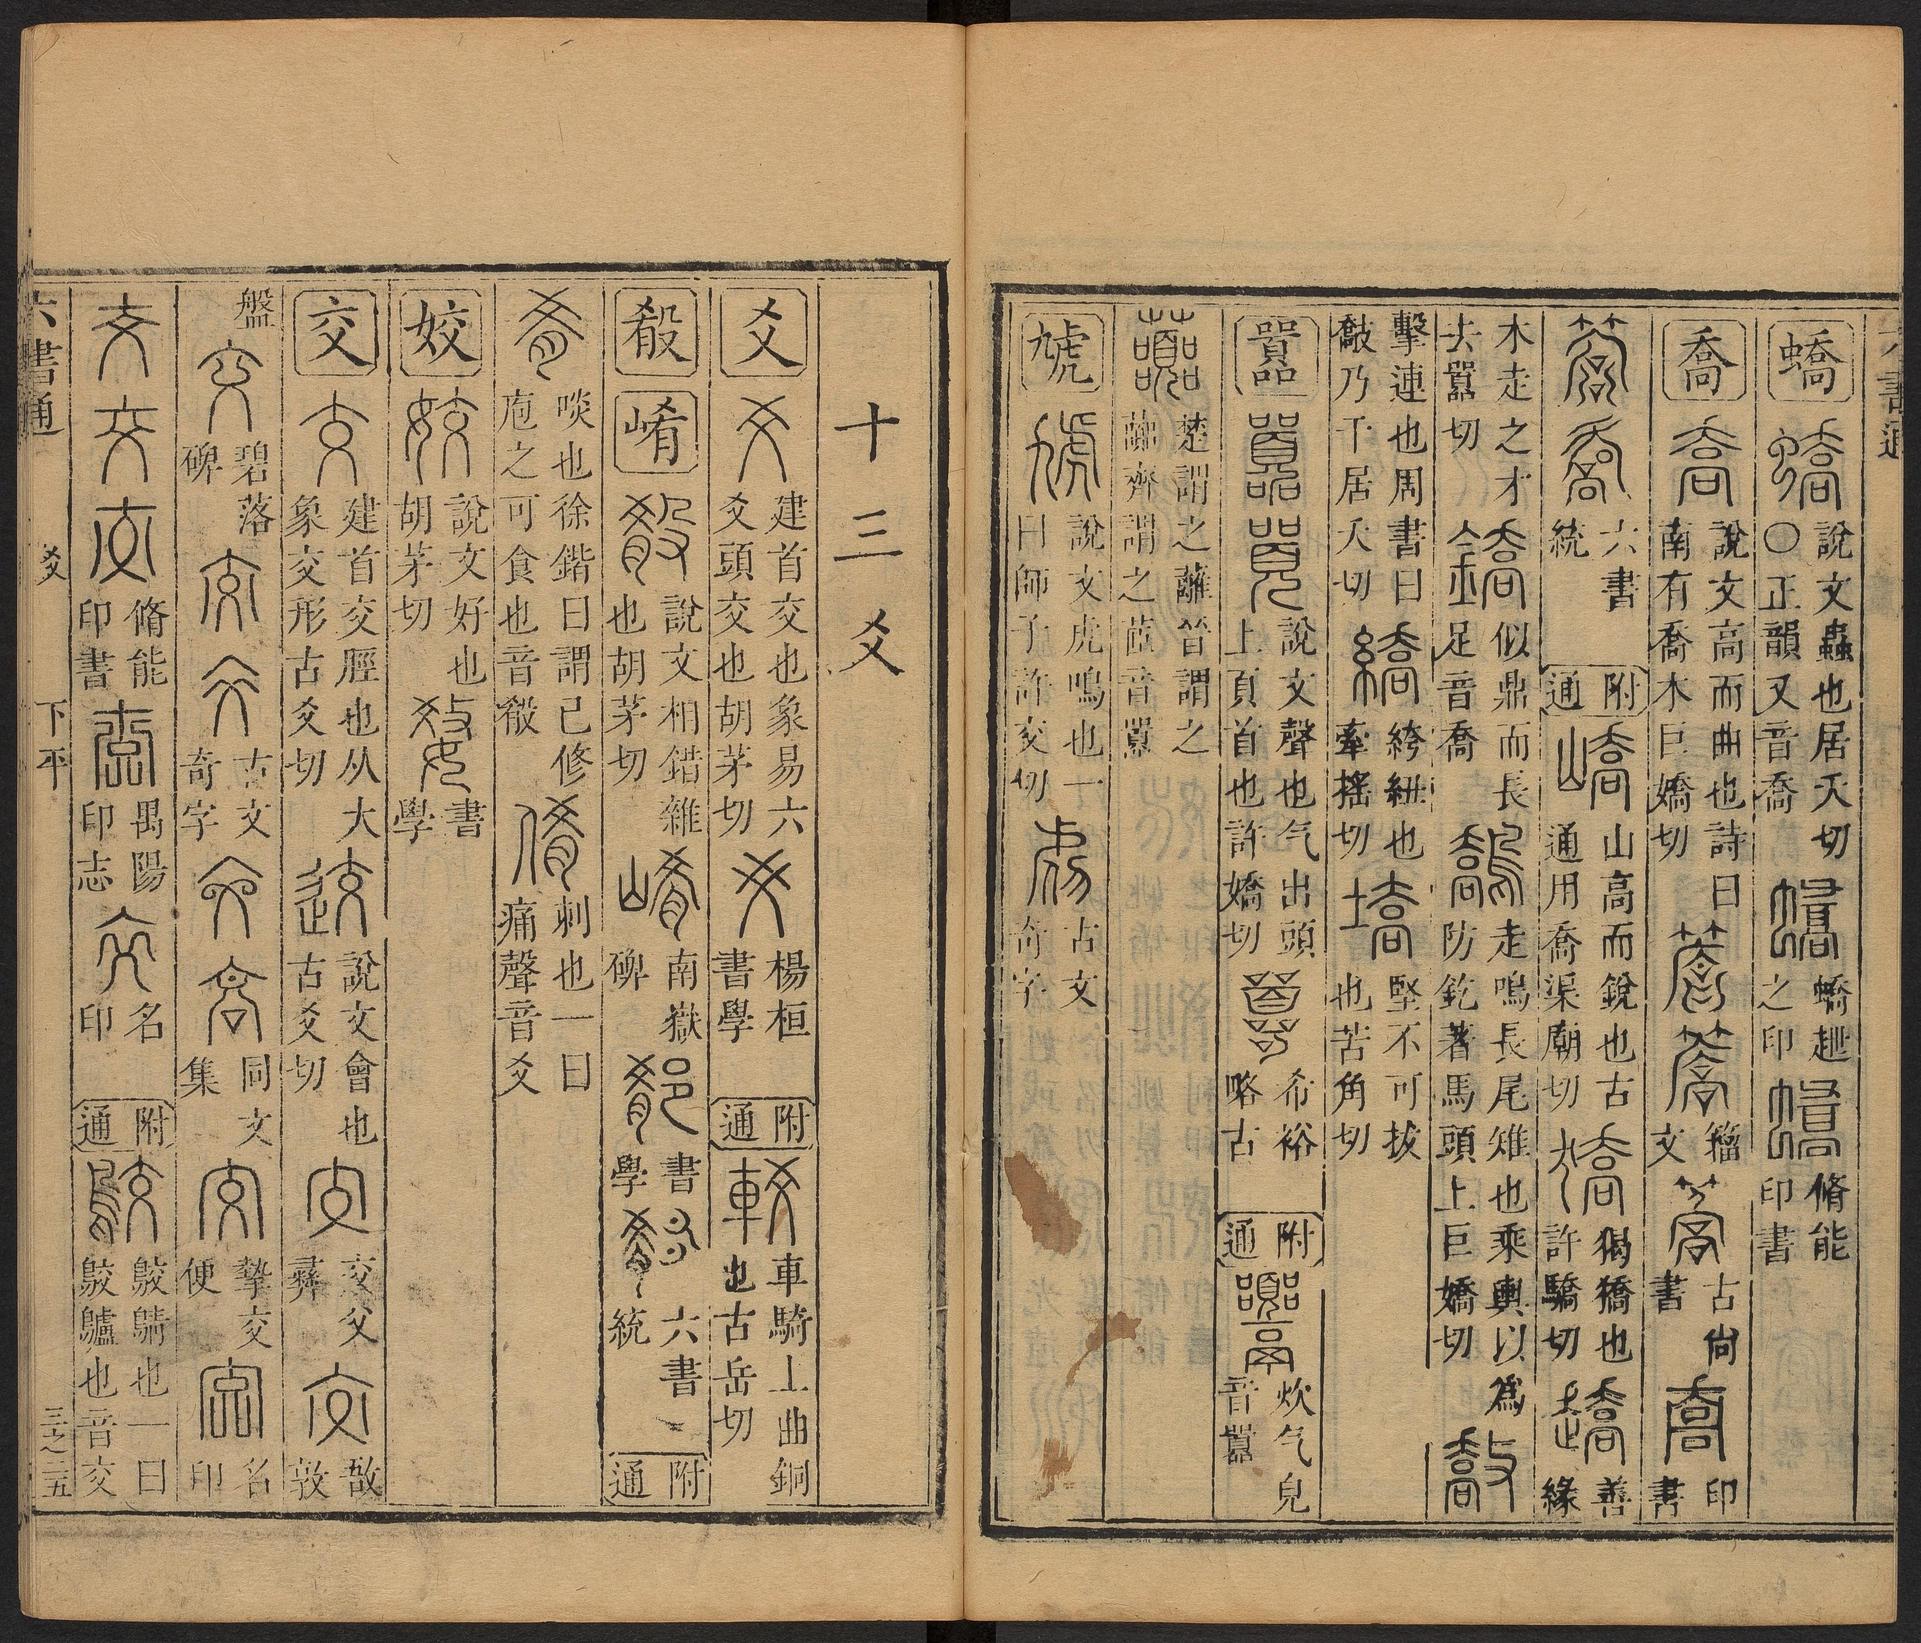 蟜 說文蟲也居夭切
○正韻又音喬 蟜趯之印 脩能印書
喬 說文高而曲也詩曰
南有喬木巨嬌切 籀文 古尚書 印書
六書統 附通 山高而銳也古
通用喬渠廟切 猲獢也
許驕切 善緣
木走之才
去嚻切 似鼎而長
足音喬 走鳴長尾雉也乘輿以為
防釳著馬頭上巨嬌切
擊連也周書曰
敽乃干居夭切 絝紐也
牽搖切 堅不可拔
也苦角切
嚻 說文聲也气出頭
上頁首也許嬌切 希裕略古 附通 炊气皃
音嚻
楚謂之蘺晉謂之
虈齊謂之茝音嚻
虓 說文虎鳴也一
曰師子許交切 古文奇字
十三爻
爻 建首交也象易六
爻頭交也胡茅切 楊桓書學 附通 車騎上曲銅
也古岳切
殽 崤 說文相錯雜
也胡茅切 南嶽碑 書學 六書統 附通
啖也徐鍇曰謂已修
庖之可食也音殽 刺也一曰
痛聲音爻
姣 說文好也
胡茅切 書學
交 建首交脛也从大
象交形古爻切 說文會也
古爻切 交父彝 敔敦
盤 碧落碑 古文奇字 同文集 摯交便 名印
脩能印書 禺陽印志 名印 附通 鮫鶄也一曰
鮫鸕也音交
六書通 爻 下平 三之二五